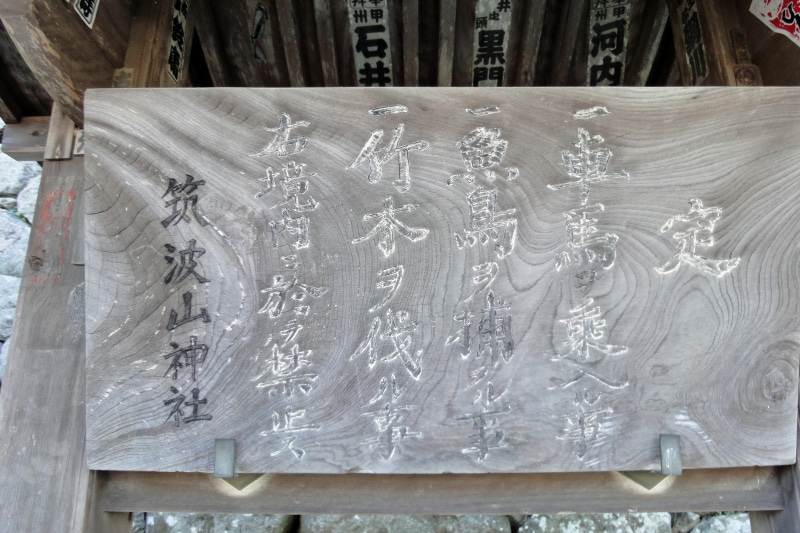 定
一車馬ヲ乗入ル事
一魚鳥ヲ捕ル事
一竹木ヲ伐ル事
右境内ニ於テヲ禁止ス
筑波山神社
甲州
石井
井
黒門
甲州
河内